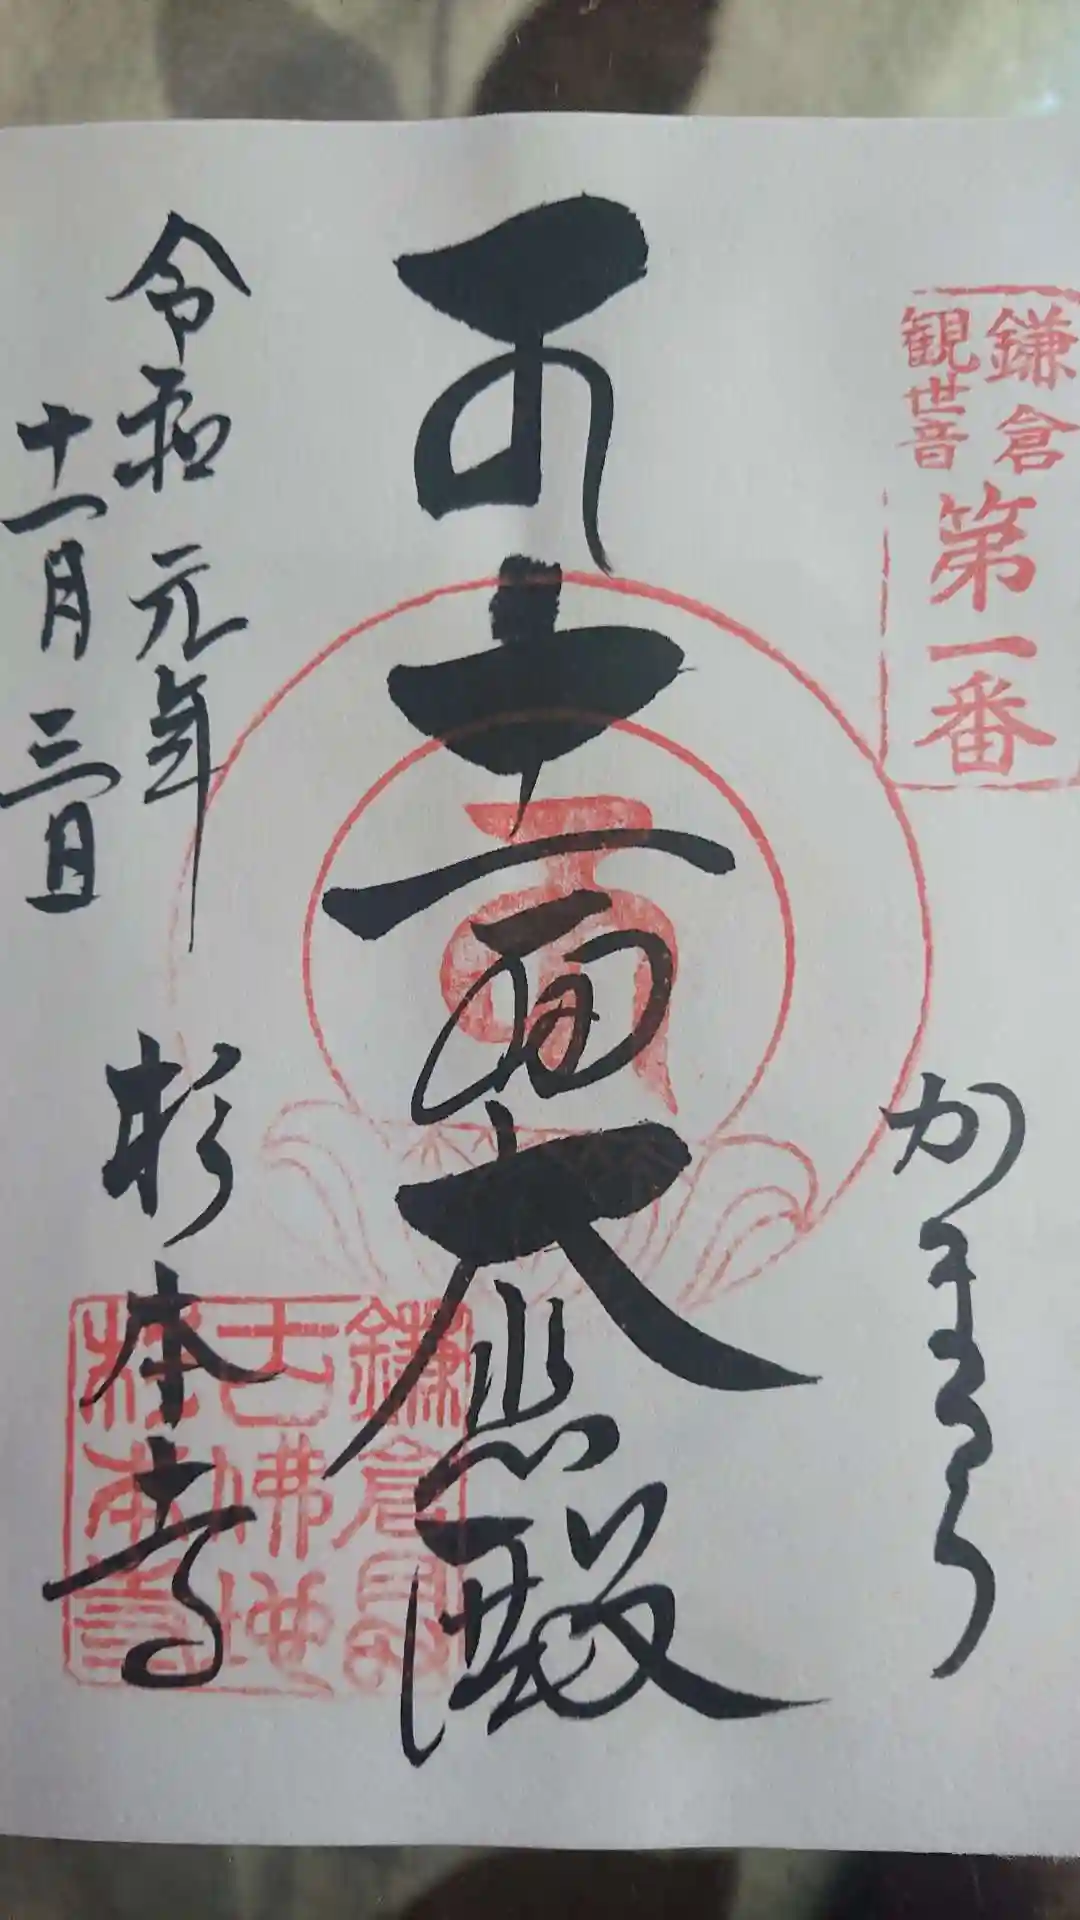 鎌倉
観世音
第一番
かまくら
十一面大悲殿
令和元年
十一月三日
杉本寺
鎌倉